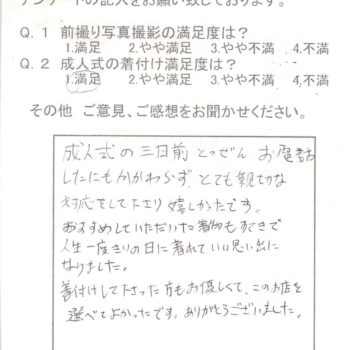 アンケートの記入をお願い致しております。
Q.1 前撮り写真撮影の満足度は?
1.満足 2.やや満足 3.やや不満 4.不満
Q.2 成人式の着付け満足度は?
1.満足 2.やや満足 3.やや不満 4.不満
その他 ご意見、ご感想をお聞かせください。
成人式の三日前とつぜんお電話
したにもかかわらず、とても親切な
対応をして下さり嬉しかったです。
おすすめしていただいた着物もすてきで
人生一度きりの日に着れていい思い出に
なりました。
着付けして下さった方もお優しくて、このお店を
選べてよかったです。ありがとうございました。